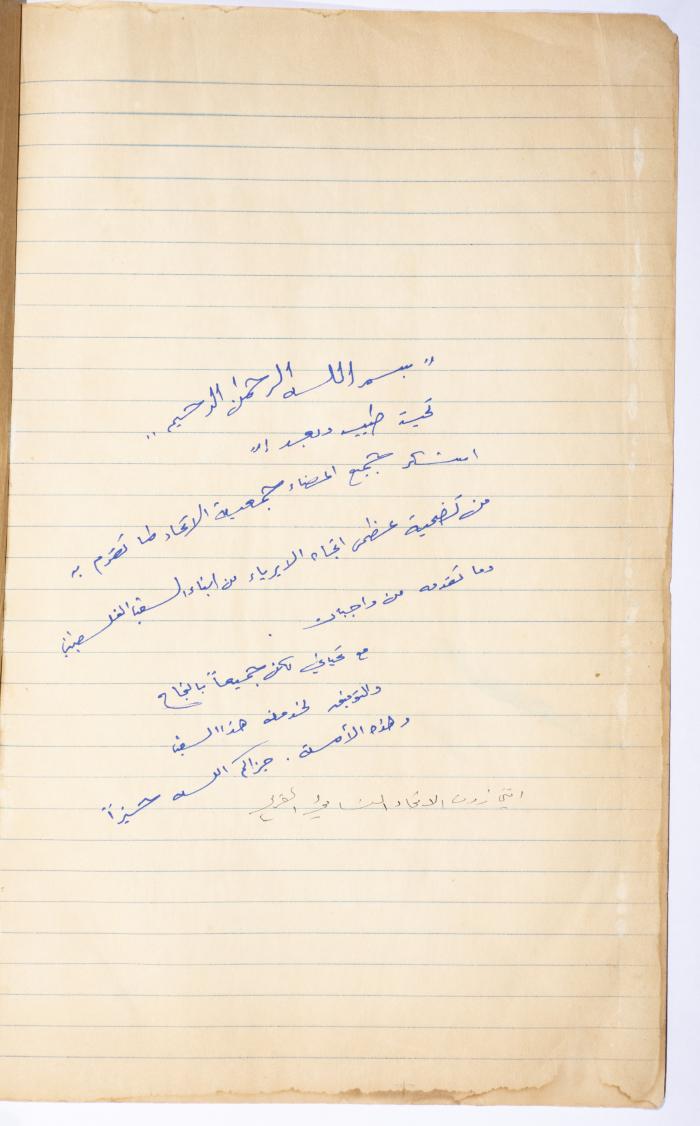 " بسم الله الرحمن الرحيم "
تحية طيبة وبعد !!
اشكر جميع اعضاء جمعية الاتحاد لما تقوم به
من تضحية عظمى اتجاه الابرياء من ابناء الشعب الفلسطيني
وما تقدمه من واجبات .
مع تحياتي لكن جميعاً بالنجاح
والتوفيق لخدمة هذا الشعب
وهذه الأمة . جزاكم الله خيراً
الاتحاد النسائي العربي